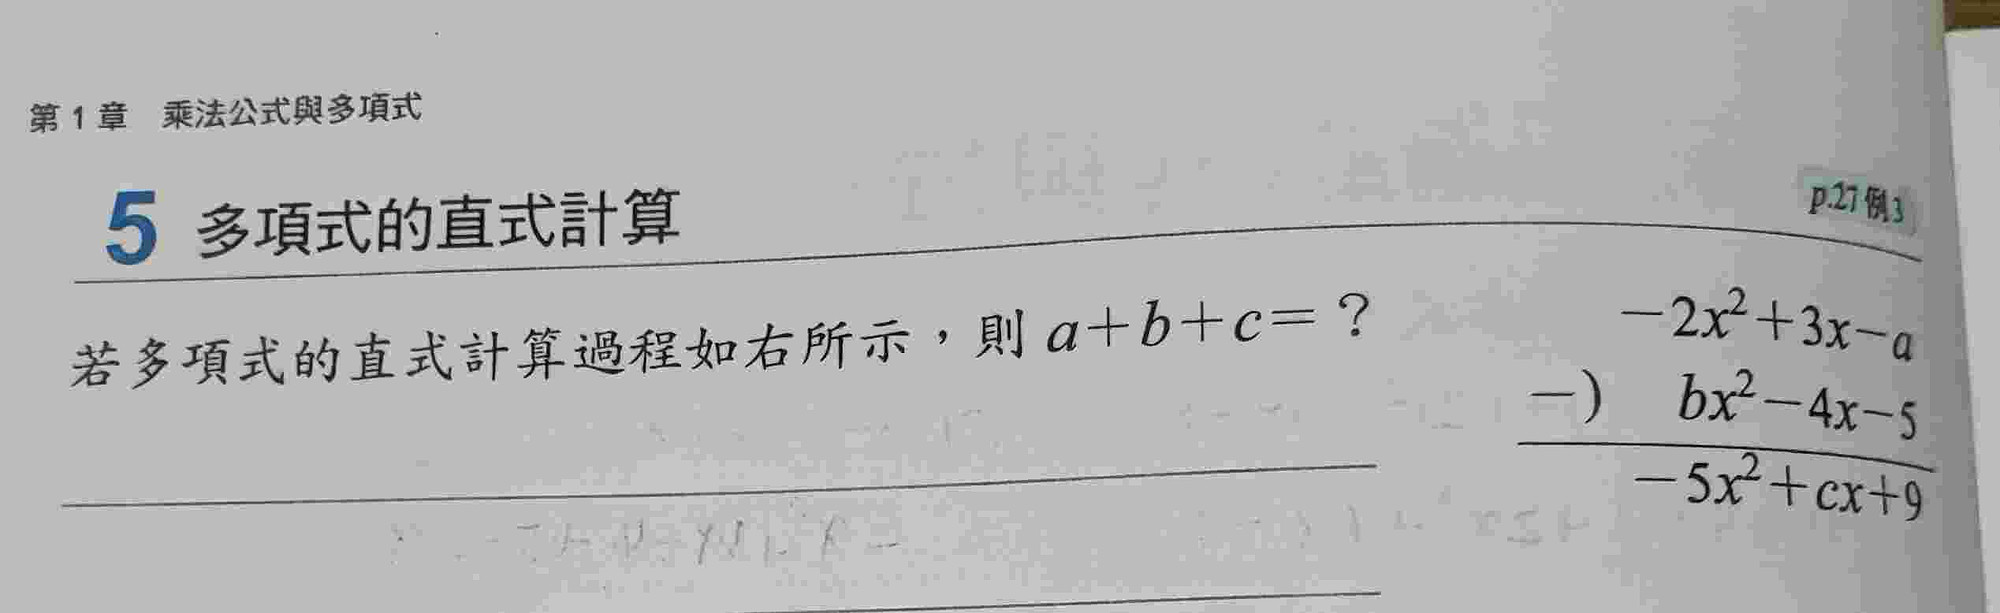 第 1 章 乘法公式與多項式
5 多項式的直式計算
p.27 例3
若多項式的直式計算過程如右所示，則 a+b+c=？
−2x²+3x−a
−) bx²−4x−5
−5x²+cx+9